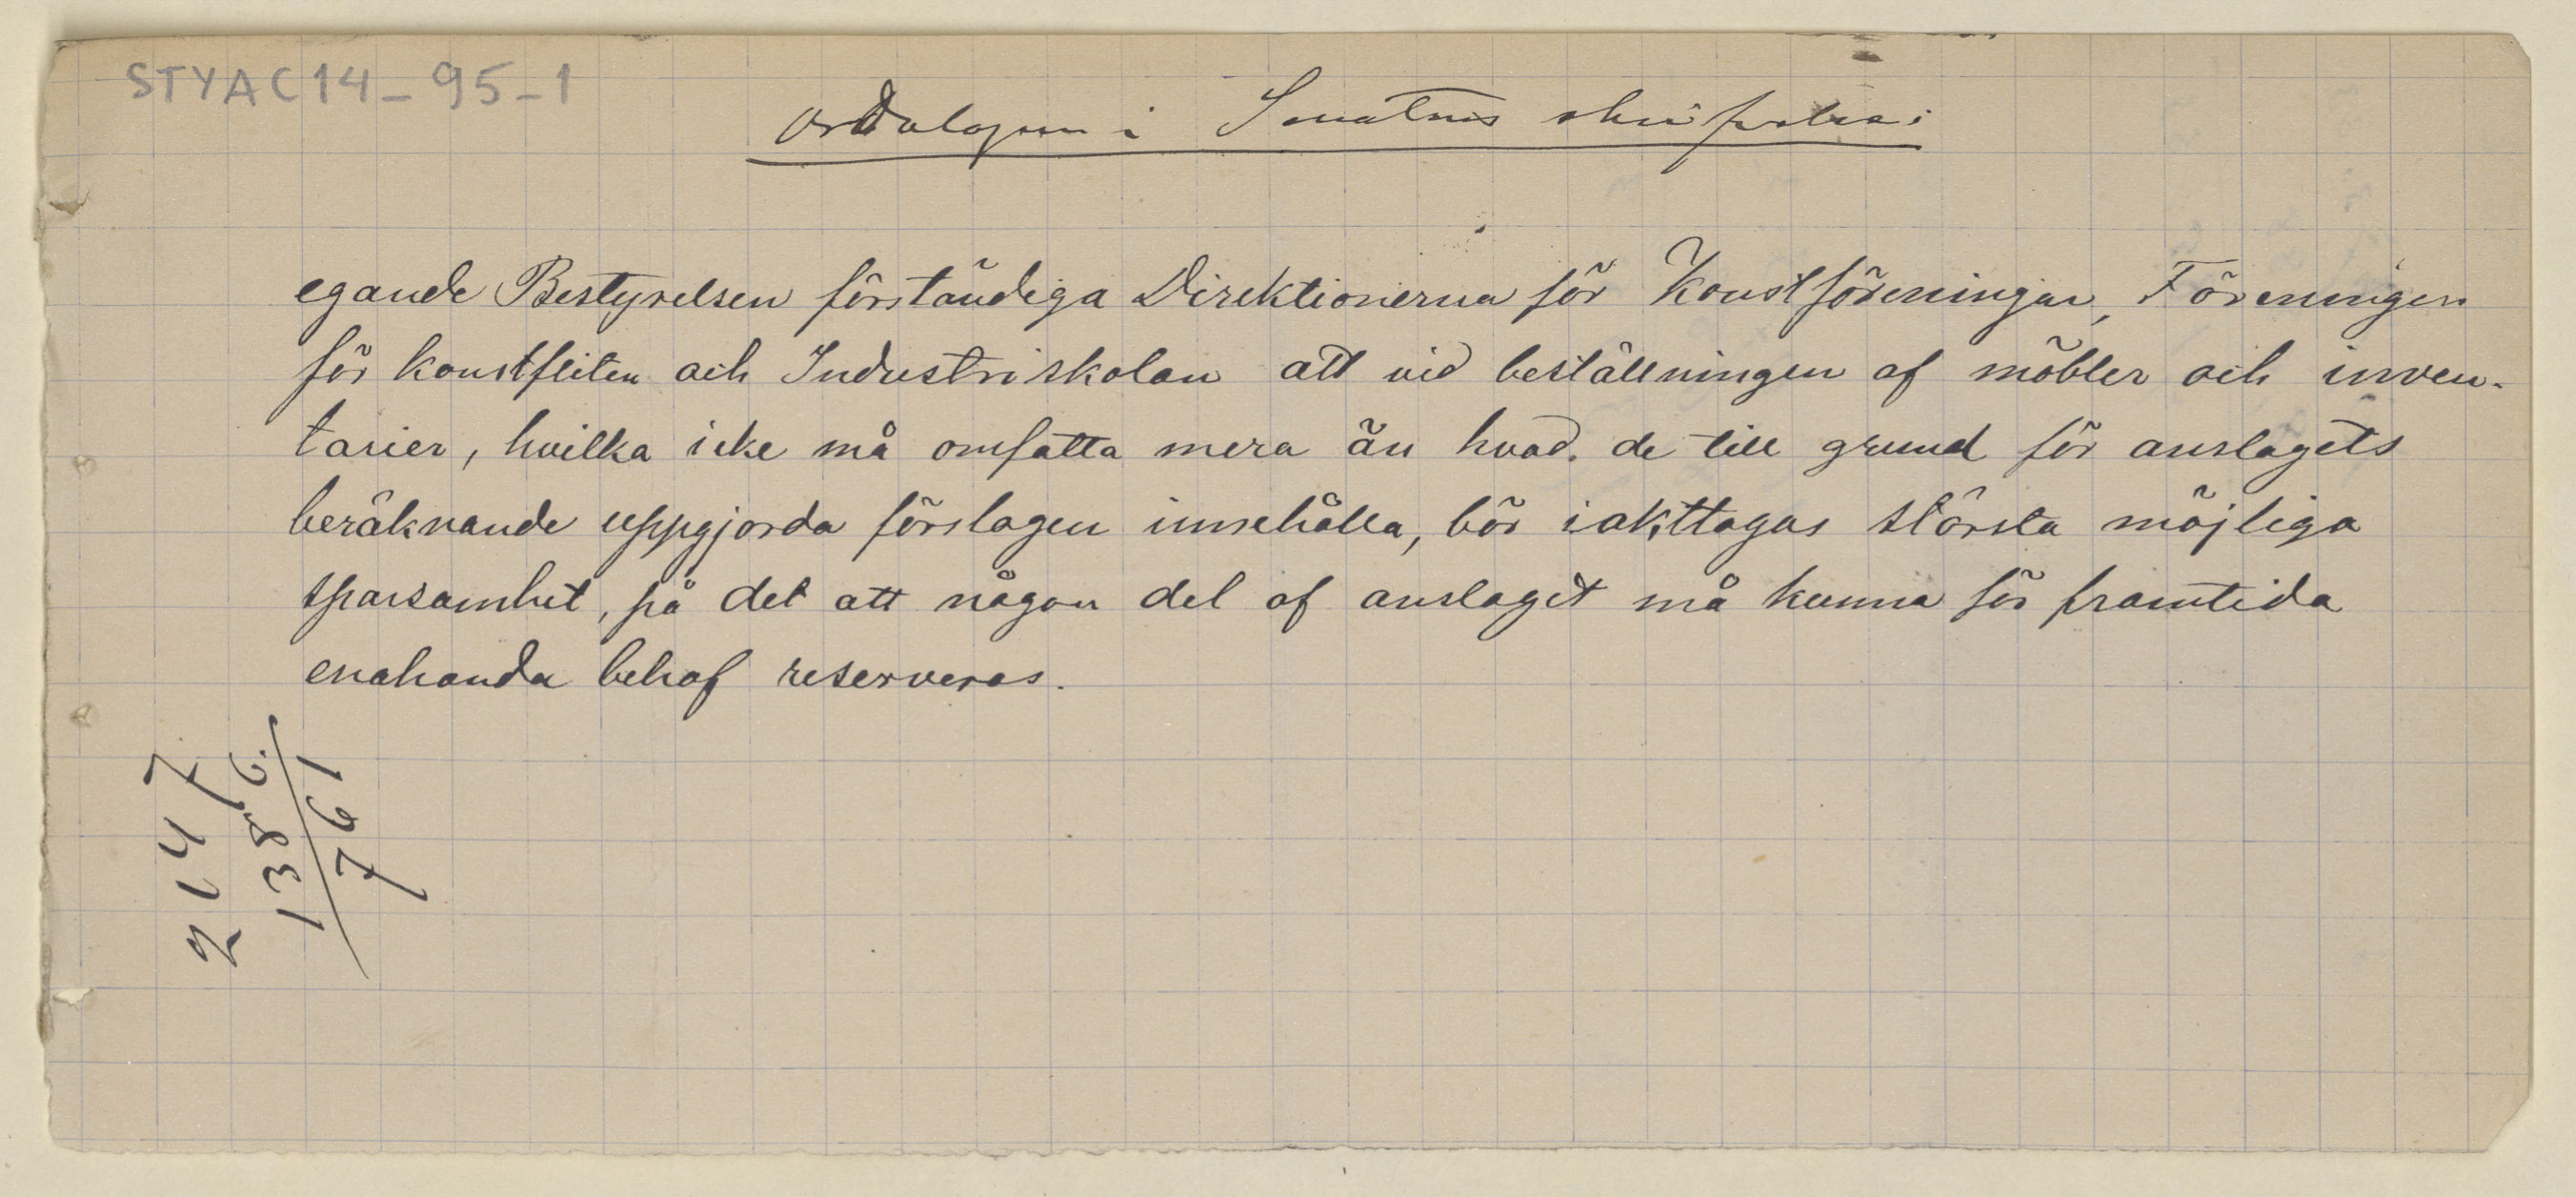 STYAC14-95-1
Ordalagen i Senatens skrifvelse:
egande Bestyrelsen förständiga Direktionerna för Konstföreningen, Föreningen
för konstfliten och Industriskolan att vid beställningen af möbler och inven-
tarier, hvilka icke må omfatta mera än hvad de till grund för anslagets
beräknande uppgjorda förslagen innehålla, bör iakttagas största möjliga
sparsamhet, på det att någon del af anslaget må kunna för framtida
enahanda behof reserveras.
2147
1386
761